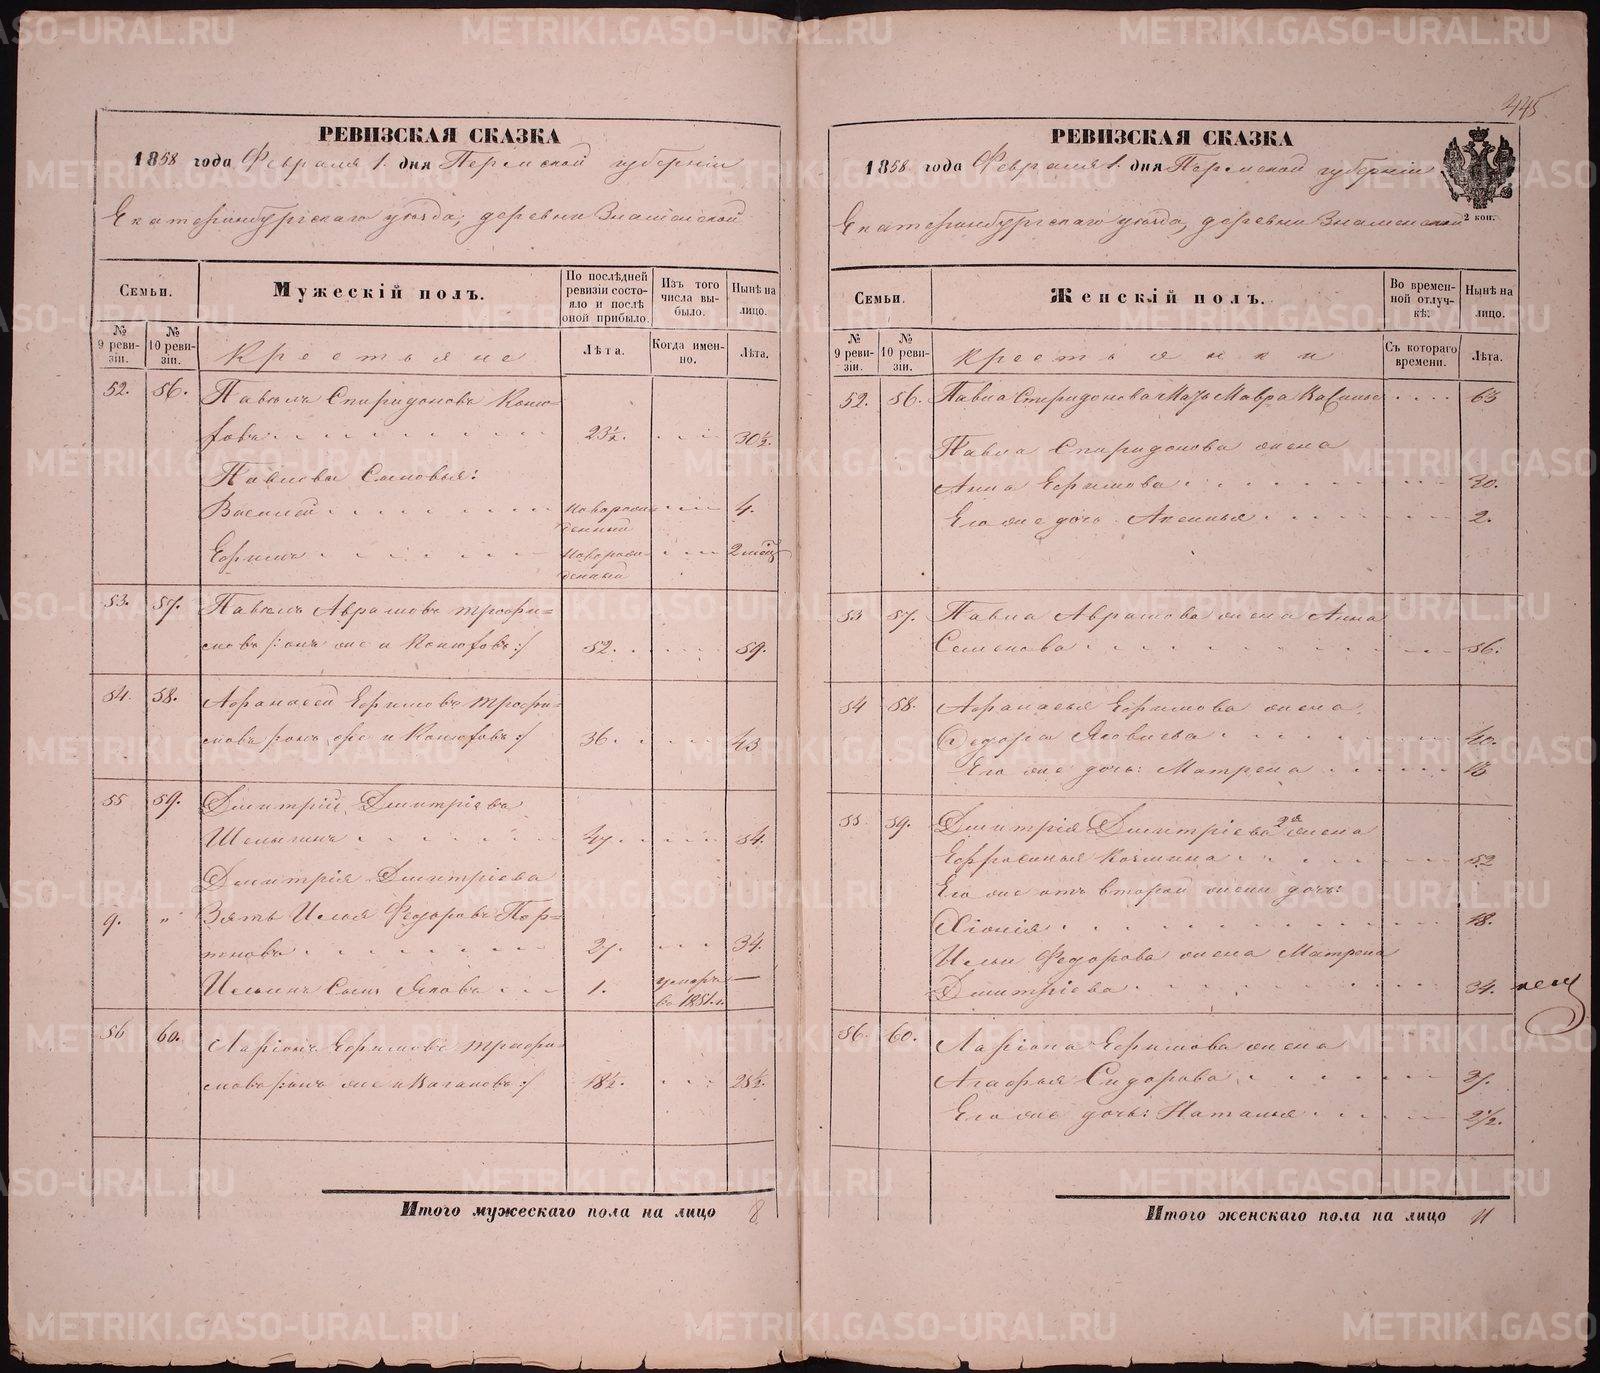 445
РЕВИЗСКАЯ СКАЗКА
1858 года Февраля 1. дня Пермской губернiи
Екатеринбургскаго уѣзда, деревни Знаменской
Семьи.
Мужескiй полъ.
По послѣдней ревизiи состояло и послѣ оной прибыло.
Изъ того числа выбыло.
Нынѣ на лицо.
№ 9 ревизiи.
№ 10 ревизiи.
Крестьяне
Лѣта.
Когда именно.
Лѣта.
52. 56. Павелъ Спиридоновъ Коню-
ховъ 23½. 30½.
Павловы Сыновья:
Василей новорож- 4.
денный
Ефимъ новорож- 2 мѣс
денный
53. 57. Павелъ Аврамовъ Трофи=
мовъ /: онъ же и Конюховъ :/ 52. 59.
54. 58. Афанасей Ефимовъ Трофи-
мовъ /: онъ же и Конюховъ :/ 36. 43
55 59. Дмитрiй Дмитрiевъ
47. 54.
Дмитрiя Дмитрiева
9. " Зять Илья Федоровъ Порт=
новъ 27. 34.
Ильинъ Сынъ Яковъ 1. умеръ —
въ 1851. г.
56 60. Ларiонъ Ефимовъ Трофи-
мовъ /: онъ же и Вагановъ :/ 18½. 25½.
Итого мужескаго пола на лицо 8
РЕВИЗСКАЯ СКАЗКА
1858 года Февраля 1. дня Пермской губернiи
2 коп.
Екатеринбургскаго уѣзда, деревни Знаменской
Семьи.
Женскiй полъ.
Во временной отлучкѣ:
Нынѣ на лицо.
№ 9 ревизiи.
№ 10 ревизiи.
Крестьянки
Съ котораго времени.
Лѣта.
52. 56. Павла Спиридонова Мать Мавра 63
Павла Спиридонова жена
Анна Ефимова 30.
Его же дочь Аксинья 2.
53 57. Павла Аврамова жена Анна
Семенова 56.
54 58. Афанасья Ефимова жена
Федора Яковлева 40.
Его же дочь: Матрена 13
55 59. Дмитрiя Дмитрiева 2я жена
Ефросинья Козмина 52
Его же отъ второй жены дочь:
Хiонiя 18.
Ильи Федорова жена Матрена
Дмитрiева 34.
56. 60. Ларiона Ефимова жена
Агафья Сидорова 27.
Его же дочь: Наталья 2½.
Итого женскаго пола на лицо 11
METRIKI.GASO-URAL.RU